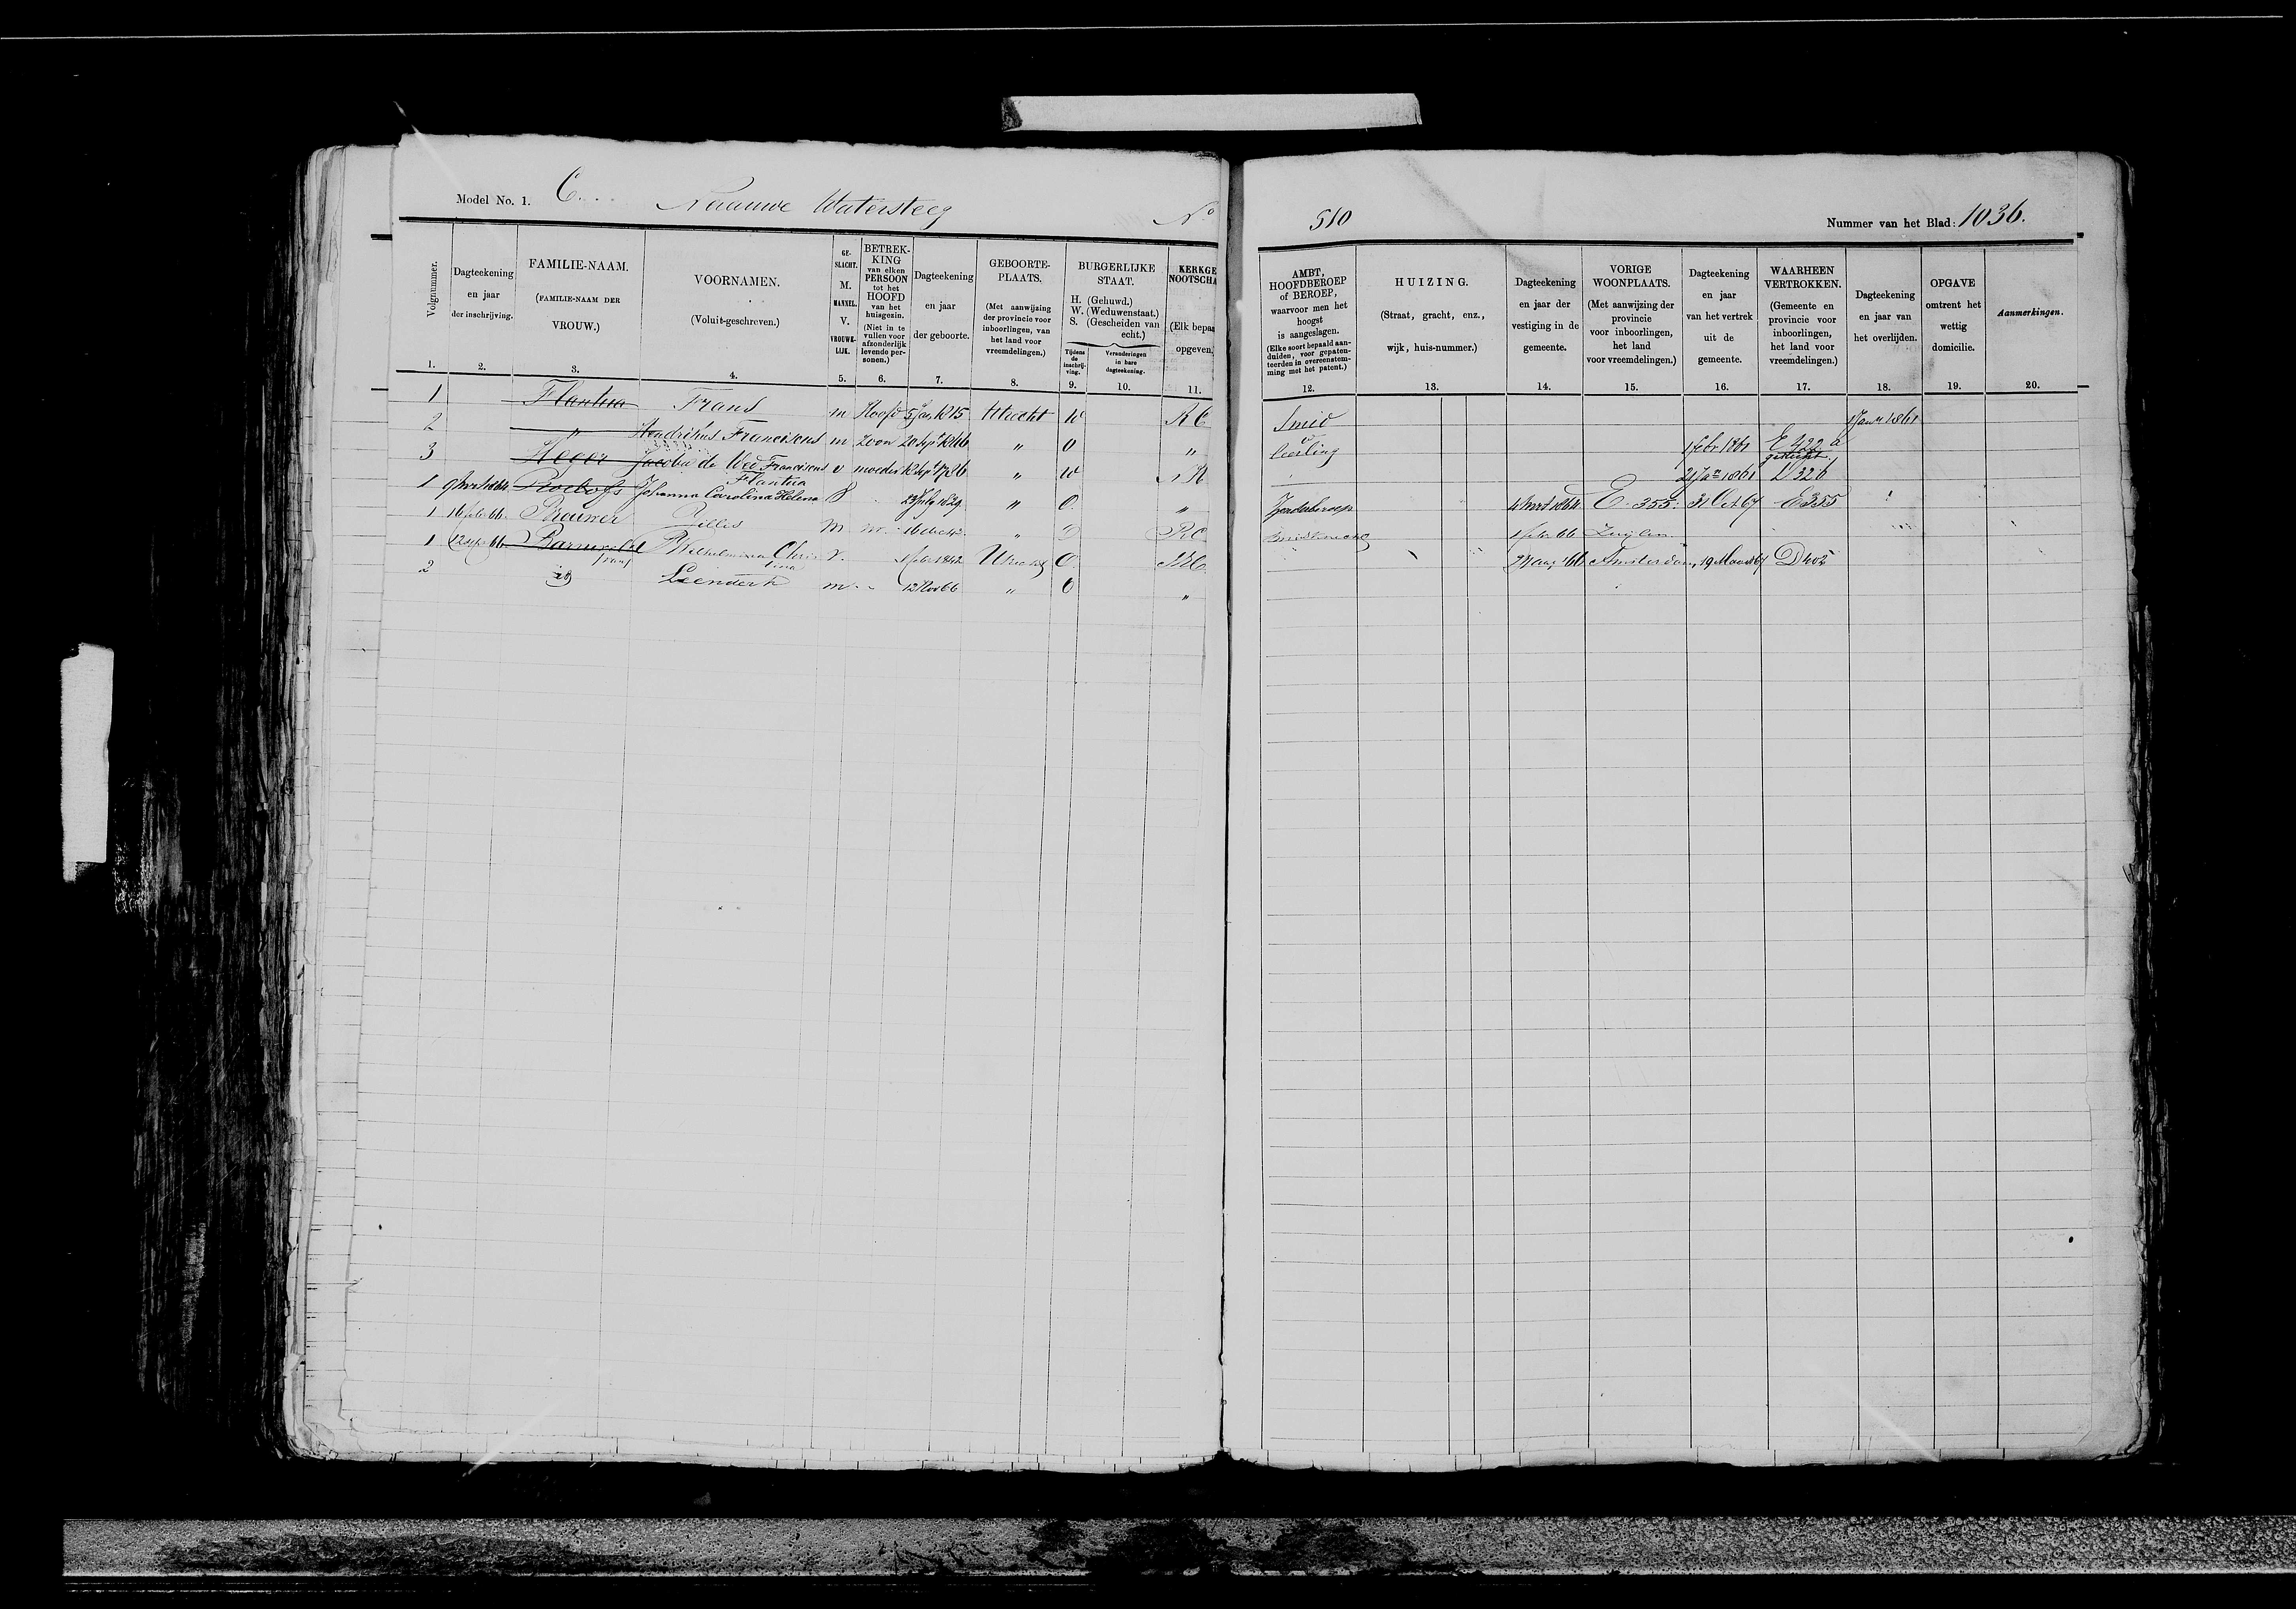 Model No. 1. C. Naauwe Watersteeg No 510 Nummer van het Blad: 1036.
Volgnummer. 1.
Dagteekening en jaar der inschrijving. 2.
FAMILIE-NAAM. (FAMILIE-NAAM DER VROUW.) 3.
VOORNAMEN. (Voluit-geschreven.) 4.
GE-SLACHT. M. MANNEL. V. VROUWE-LIJK. 5.
BETREK-KING van elken PERSOON tot het HOOFD van het huisgezin. (Niet in te vullen voor afzonderlijk levende per-sonen.) 6.
Dagteekening en jaar der geboorte. 7.
GEBOORTE-PLAATS. (Met aanwijzing der provincie voor inboorlingen, van het land voor vreemdelingen.) 8.
BURGERLIJKE STAAT. H. (Gehuwd.) W. (Weduwenstaat.) S. (Gescheiden van echt.)
Tijdens de inschrij-ving. 9.
Veranderingen in hare dagteekening. 10.
KERKGE NOOTSCHA (Elk bepaa opgeven, 11.
AMBT, HOOFDBEROEP of BEROEP, waarvoor men het hoogst is aangeslagen. (Elke soort bepaald aan-duiden, voor gepaten-teerden in overeenstem-ming met het patent.) 12.
HUIZING. (Straat, gracht, enz., wijk, huis-nummer.) 13.
Dagteekening en jaar der vestiging in de gemeente. 14.
VORIGE WOONPLAATS. (Met aanwijzing der provincie voor inboorlingen, het land voor vreemdelingen.) 15.
Dagteekening en jaar van het vertrek uit de gemeente. 16.
WAARHEEN VERTROKKEN. (Gemeente en provincie voor inboorlingen, het land voor vreemdelingen.) 17.
Dagteekening en jaar van het overlijden. 18.
OPGAVE omtrent het wettig domicilie. 19.
Aanmerkingen. 20.
1 Flantua Frans m Hoofd 5 Jan 1815 Utrecht W R C Smid Janr 1861
2 " Hendrikus Franciscus m Zoon 20 Sept 1846 " O " leerling 1 febr 1861 E 422 a
3 Heger Jacoba de Wed Franciscus Flantua v moeder 12 Sept 1786 " W 21 Jan 1861 D 326
1 Roelofs Johanna Carolina Helena 23 July 1829 " O. " Zonder beroep 4 Mrt 1864 E 355 31 Oct 67 E 355
1 16 febr 66. Brouwer Gillis M " RC Smidsknecht febr 66 Zuijlen
1 12 sept 66 Wilhelmina Christina V. febr 1842 Utrecht O. 27 aug 66 Amsterdam 19 Maart 67 D 402
2 Leendert m 12 Nov 66 " O "